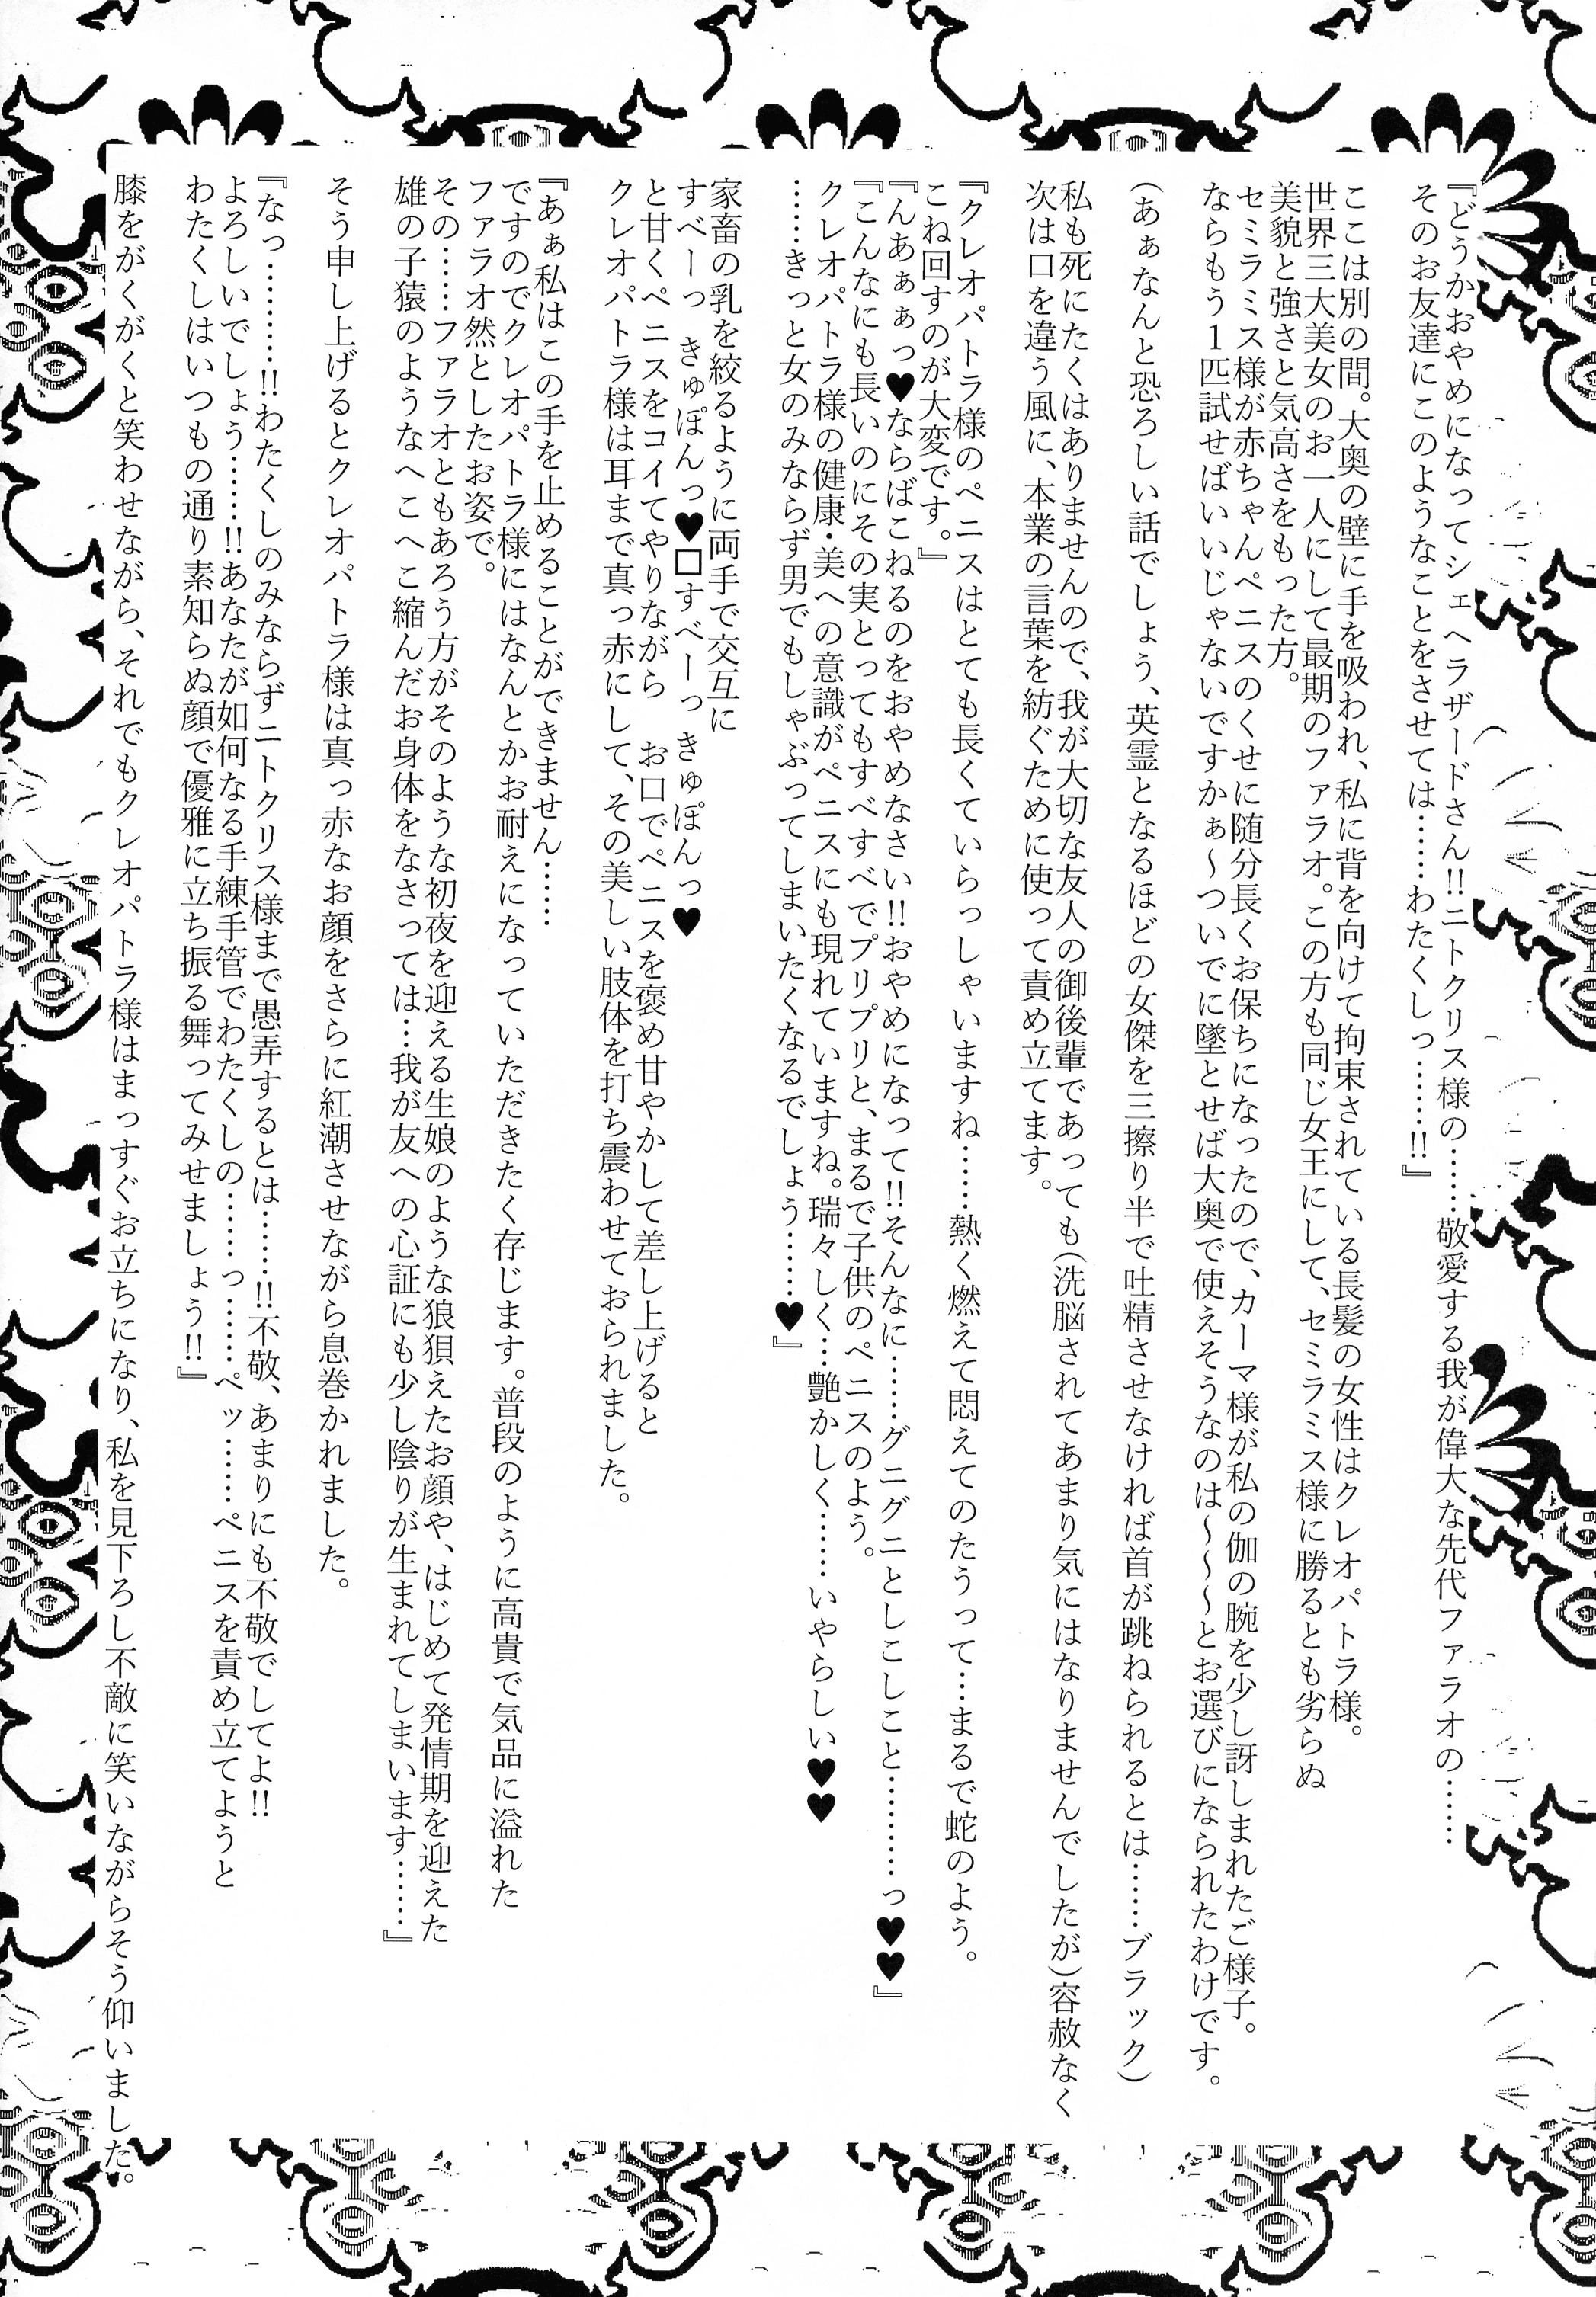 『どうかおやめになってシェヘラザードさん!!ニトクリス様の……敬愛する我が偉大な先代ファラオの……
そのお友達にこのようなことをさせては……わたくしっ……!!』
ここは別の間。大奥の壁に手を吸われ、私に背を向けて拘束されている長髪の女性はクレオパトラ様。
世界三大美女のお一人にして最期のファラオ。この方も同じ女王にして、セミラミス様に勝るとも劣らぬ
美貌と強さと気高さをもった方。
セミラミス様が赤ちゃんペニスのくせに随分長くお保ちになったので、カーマ様が私の伽の腕を少し訝しまれたご様子。
ならもう1匹試せばいいじゃないですかぁ～ついでに墜とせば大奥で使えそうなのは～～～とお選びになられたわけです。
(あぁなんと恐ろしい話でしょう、英霊となるほどの女傑を三擦り半で吐精させなければ首が跳ねられるとは……ブラック)
私も死にたくはありませんので、我が大切な友人の御後輩であっても(洗脳されてあまり気にはなりませんでしたが)容赦なく
次は口を違う風に、本業の言葉を紡ぐために使って責め立てます。
『クレオパトラ様のペニスはとても長くていらっしゃいますね……熱く燃えて悶えてのたうって…まるで蛇のよう。
こね回すのが大変です。』
『んあぁぁっ♥ならばこねるのをおやめなさい!!おやめになって!!そんなに……グニグニとしこしこと………っ♥♥』
『こんなにも長いのにその実とってもすべすべでプリプリと、まるで子供のペニスのよう。
クレオパトラ様の健康・美への意識がペニスにも現れていますね。瑞々しく…艶かしく……いやらしい♥♥
……きっと女のみならず男でもしゃぶってしまいたくなるでしょう……♥』
家畜の乳を絞るように両手で交互に
すべーっ きゅぽんっ♥□すべーっ きゅぽんっ♥
と甘くペニスをコイてやりながら お口でペニスを褒め甘やかして差し上げると
クレオパトラ様は耳まで真っ赤にして、その美しい肢体を打ち震わせておられました。
『あぁ私はこの手を止めることができません……
ですのでクレオパトラ様にはなんとかお耐えになっていただきたく存じます。普段のように高貴で気品に溢れた
ファラオ然としたお姿で。
その……ファラオともあろう方がそのような初夜を迎える生娘のような狼狽えたお顔や、はじめて発情期を迎えた
雄の子猿のようなへこへこ縮んだお身体をなさっては…我が友への心証にも少し陰りが生まれてしまいます……』
そう申し上げるとクレオパトラ様は真っ赤なお顔をさらに紅潮させながら息巻かれました。
『なっ………!!わたくしのみならずニトクリス様まで愚弄するとは……!!不敬、あまりにも不敬でしてよ!!
よろしいでしょう……!!あなたが如何なる手練手管でわたくしの……っ……ペッ……ペニスを責め立てようと
わたくしはいつもの通り素知らぬ顔で優雅に立ち振る舞ってみせましょう!!』
膝をがくがくと笑わせながら、それでもクレオパトラ様はまっすぐお立ちになり、私を見下ろし不敵に笑いながらそう仰いました。